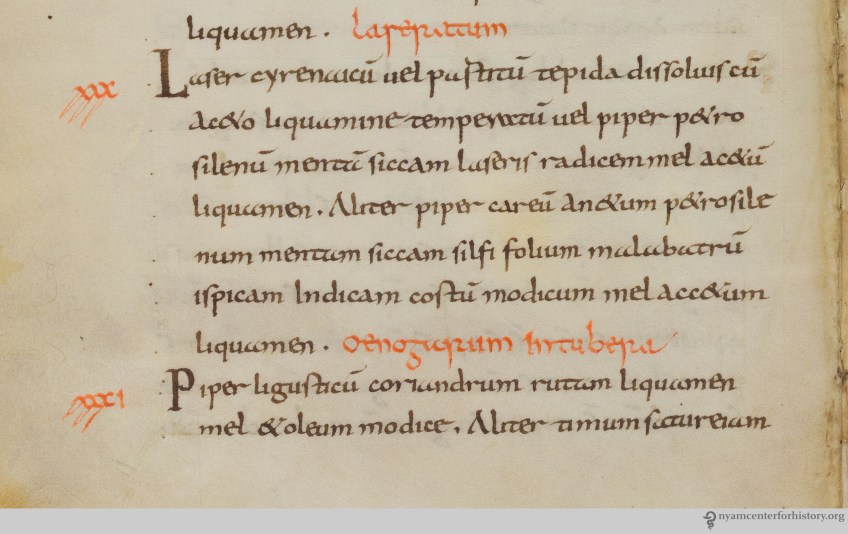 liquamen. laseratum
xxx Laser cyrenaicū uel partitū tepida dissoluis cū
ac&o liquamine temperatū uel piper p&ro
silenū mentā siccam laseris radicem mel ac&ū
liquamen. Aliter piper careū an&um p&rosile
num mentam siccam silfi folium malabatrū
ispicam Indicam costū modicum mel acc&um
liquamen. oenogarum Intubera
xxxi Piper ligusticū coriandrum rutam liquamen
mel &oleum modice. Aliter timum satureiam
nyamcenterforhistory.org